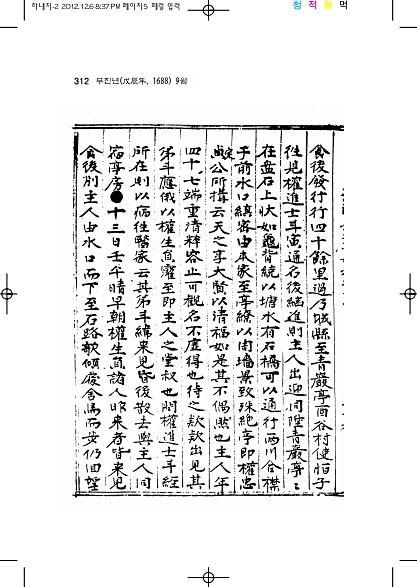 하내지-2 2012.12.6 8:37 PM 페이지5 입력
청 적 황 먹
312 무진년(戊辰年, 1688) 9월
食後發行行四十餘里過乃城縣至靑巖亭酉谷村使怕子
往見權進士斗寅通名後繼進則主人出迎同陞靑巖亭〻
在盘石上状如龜背繞以塘水有石橋可以通行兩川合襟
于前水口縝密由本家至亭繚以周墻景致殊絶亭即權忠
定公所構云天之享大賢以清福如是其不偶然也主人年
四十七端重清粹容止可觀名不虛得也待之款款出見其
弟斗應俄以權生霱至即主人之堂叔也問權進士斗經
所在則以病往醫家云其弟斗緯來見昏後散去與主人同
宿亭房●十三日壬午晴早朝權生諸人昨來者皆來見
食後別主人由水口而下至石路欹傾處舍馬而步仍回望